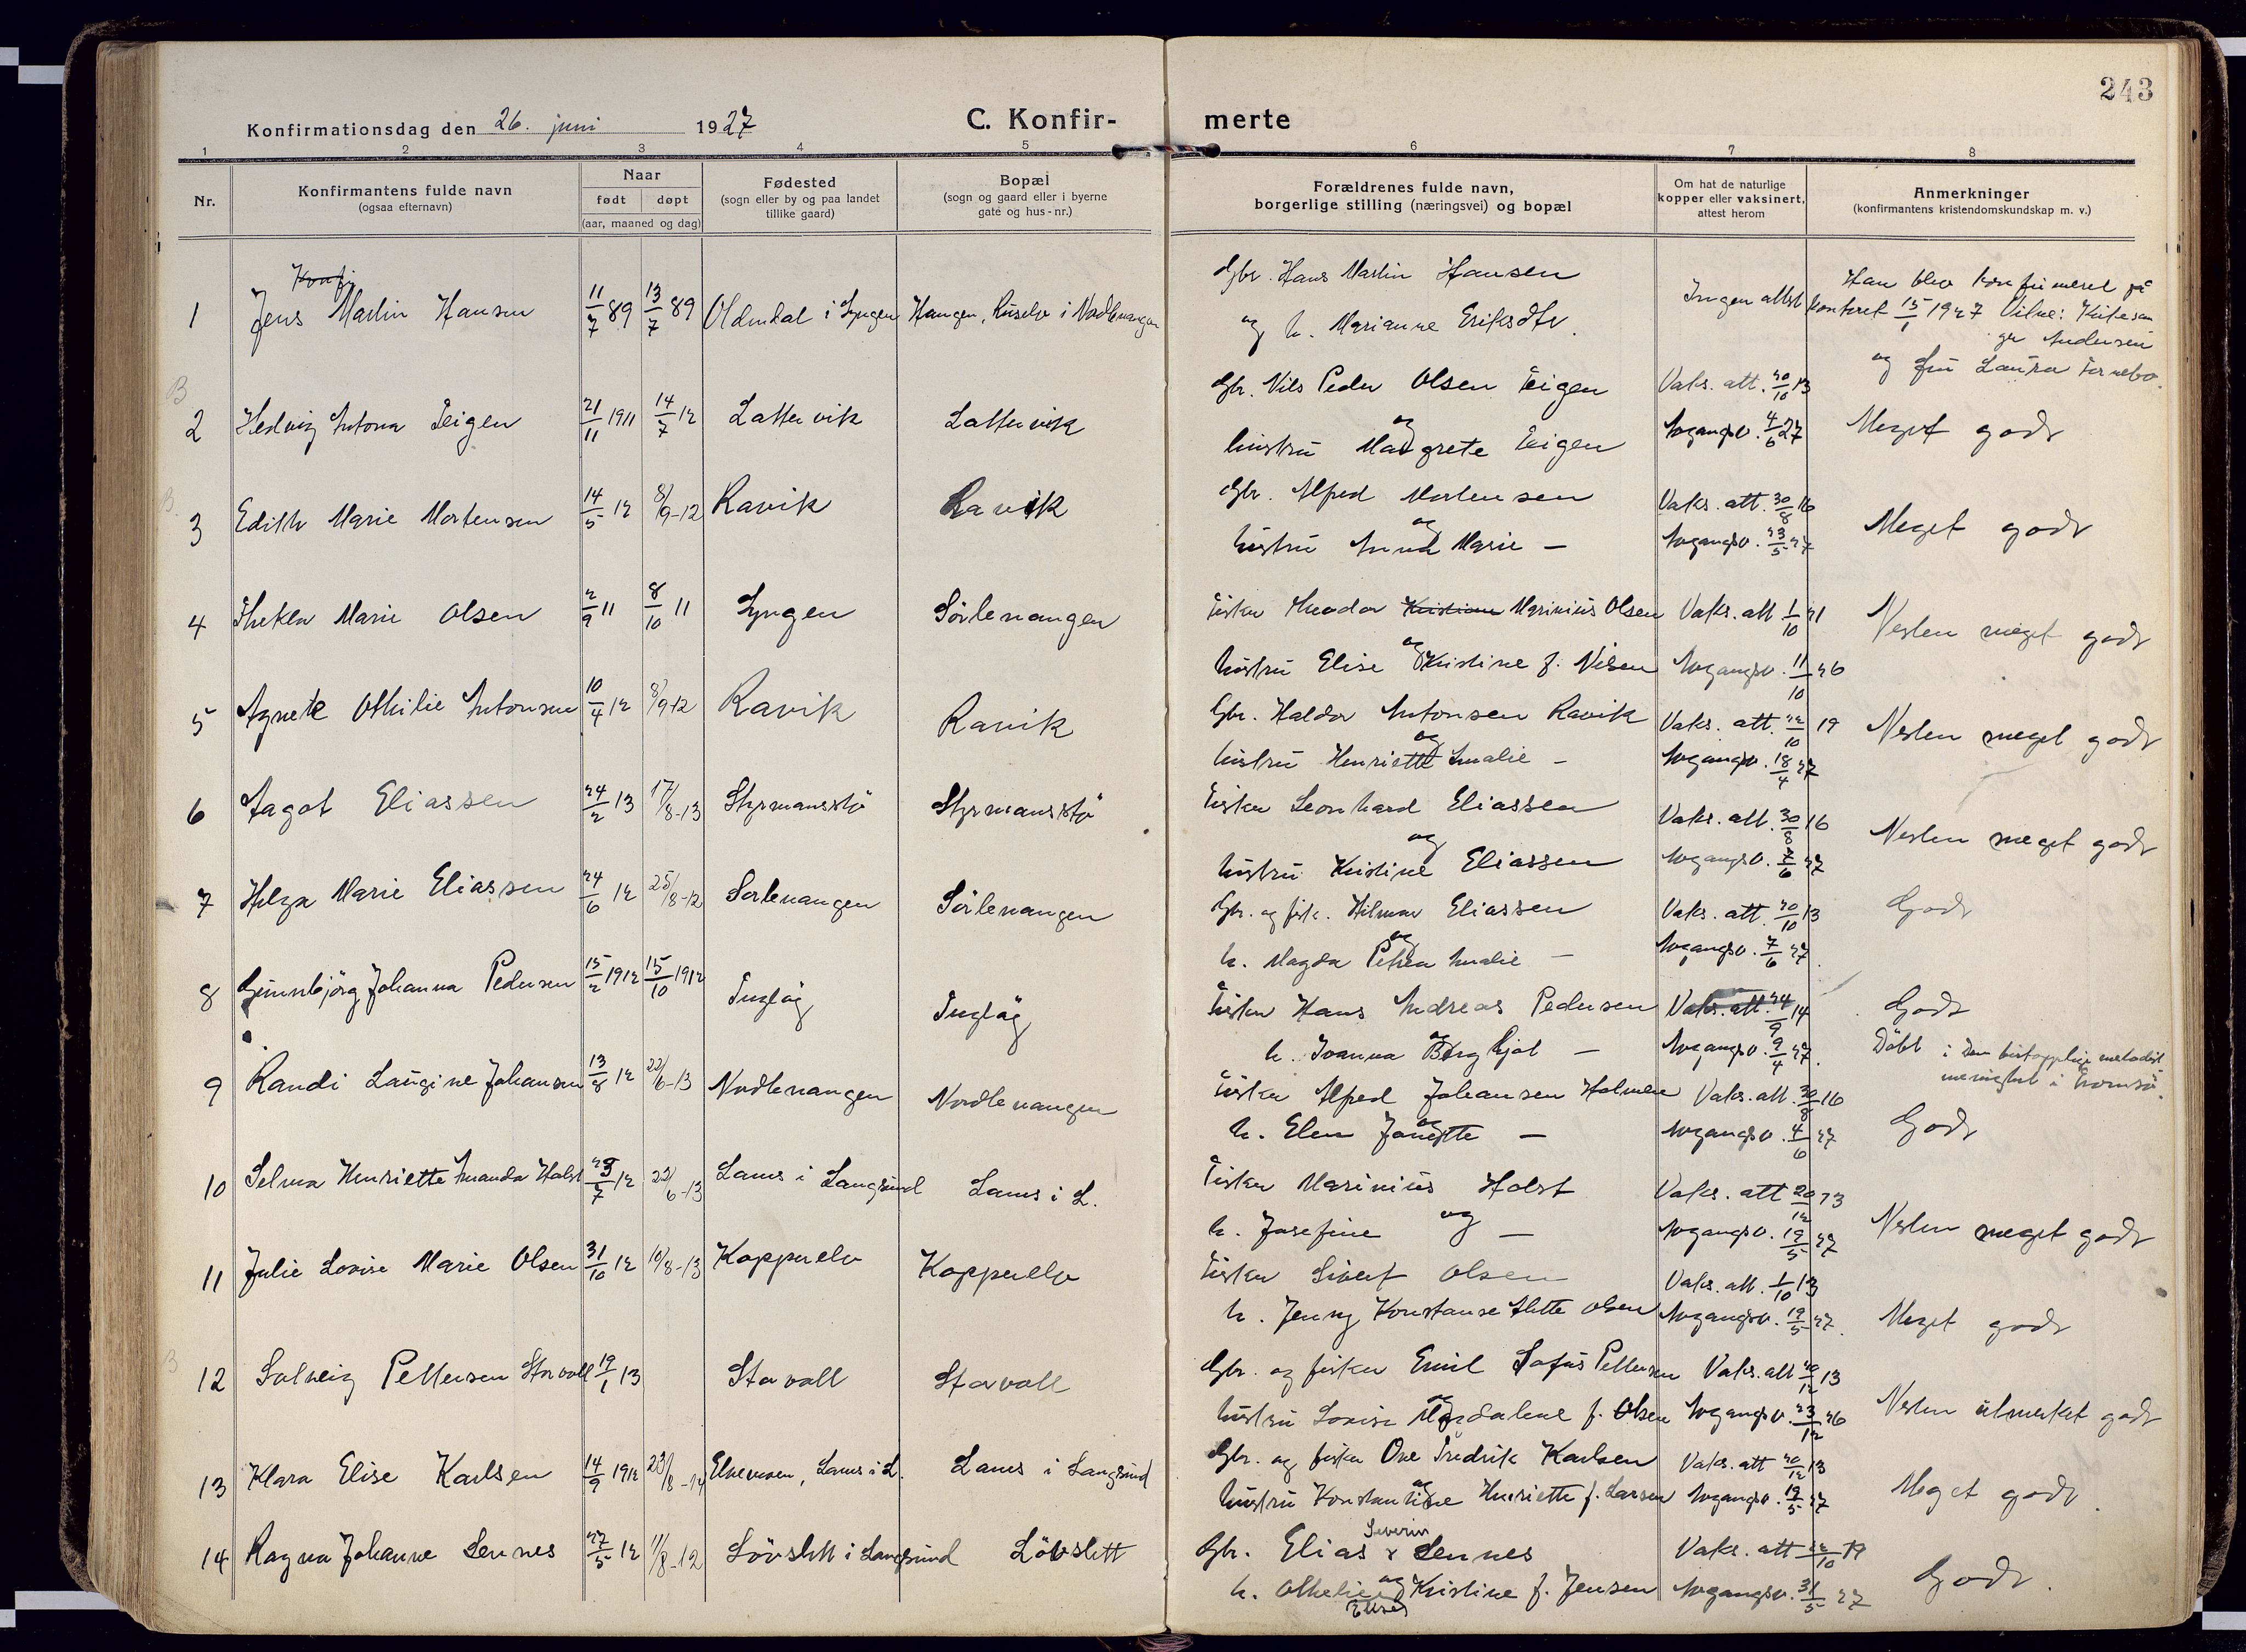 243
Konfirmationsdag den 26. juni 1927
C. Konfir-
merte
1 2 3 4 5 6 7 8
Nr.
Konfirmantens fulde navn
(ogsaa efternavn)
Naar
født døpt
(aar, maaned og dag)
Fødested
(sogn eller by og paa landet
tillike gaard)
Bopæl
(sogn og gaard eller i byerne
gate og hus-nr.)
Forældrenes fulde navn,
borgerlige stilling (næringsvei) og bopæl
Om hat de naturlige
kopper eller vaksinert,
attest herom
Anmerkninger
(konfirmantens kristendomskundskap m. v.)
1 Jens Martin Hansen 11/7 89 13/7 89 i Lyngen i Nordlenangen
Gbr. Hans Martin Hansen
og h. Marianne Eriksdtr.
Ingen attest
Han blev konfirmeret på
kontoret 15/1 1927
Andersen
og fru Laura
B
2 Hedvig Antona Teigen 21/11 1911 14/7 12 Lattervik Lattervik
Gbr. Nils Peder Olsen Teigen
og
hustru Margrete Teigen
Vaks. att. 20/10 13
Avgangsv. 4/6 27
Meget godt
B
3 Edith Marie Mortensen 14/5 12 8/9-12 Ravik Ravik
Gbr. Alfred Mortensen
og
hustru Anna Marie —
Vaks. att. 30/8 16
Avgangsv. 23/5 27
Meget godt
4 Thekla Marie Olsen 2/9 11 8/10 11 Lyngen Sörlenangen
Fisker Theodor Kristian Marinius Olsen
og
hustru Elise Kristine f. Nilsen
Vaks. att 1/10 21
Avgangsv. 11/10 26
Nesten meget godt
5 Agnete Othilie Antonsen 10/4 12 8/9-12 Ravik Ravik
Gbr. Haldor Antonsen Ravik
og
hustru Henriette Amalie —
Vaks. att. 22/10 19
Avgangsv. 18/4 27
Nesten meget godt
6 Aagot Eliassen 24/2 13 17/8-13 Styrmansstö Styrmansstö
Fisker Leonhard Eliassen
og
hustru Kristine Eliassen
Vaks. att. 30/8 16
Avgangsv. 7/6 27
Nesten meget godt
7 Helga Marie Eliassen 24/6 12 25/8-12 Sörlenangen Sörlenangen
Gbr. og fisk. Hilmar Eliassen
og
h. Magda Petrea Amalie —
Vaks. att. 20/10 13
Avgangsv. 7/6 27.
Godt
8 Gunnbjörg Johanna Pedersen 15/2 1912 15/10 1912
Fisker Hans Andreas Pedersen
og
h. Ivanna Bergljot —
Vaks. att. 24/9 14
Avgangsv. 9/4 27.
Godt
Döbt i den biskoppelige metodist
menighet i Tromsö.
9 Randi Laugine Johansen 13/8 12 22/6-13 Nordlenangen Nordlenangen
Fisker Alfred Johansen Holmen
og
h. Elen Janette —
Vaks. att. 30/8 16
Avgangsv. 4/6 27
Godt
10 Selma Henriette Amanda Holst 12 22/6-13 i Langsund i L.
Fisker Marinius Holst
og
h. Josefine —
Vaks. att 20/12 13
Avgangsv. 19/5 27
Nesten meget godt
11 Julie Lovise Marie Olsen 31/10 12 10/8-13 Kopperelv Kopperelv
Fisker Sivert Olsen
h. Jenny Konstanse Alette Olsen
Vaks. att. 1/10 13
Avgangsv. 19/5 27.
Meget godt
B
12 Solveig Pettersen Storvoll 19/1 13 Storvoll Storvoll
Gbr. og fisker Emil Sofus Pettersen
og
hustru Lovise Magdalene f. Olsen
Vaks. att 20/12 13
Avgangsv. 23/12 26
Nesten utmerket godt
13 Klara Elise Karlsen 14/9 1912 23/8-14 Elvemoen, i L. i Langsund
Gbr. og fisker Ove Fredrik Karlsen
og
hustru Konstantine Henriette f. Larsen
Vaks. att 20/12 13
Avgangsv. 19/5 27
Meget godt.
14 Ragna Johanne Sennes 27/5 12 11/8-12 Lövslett i Langsund Lövslett
Severin
Gbr. Elias x Sennes
og
h. Othelie Kristine f. Jensen
Vaks. att 22/10 19
Avgangsv. 31/5 27
Godt.